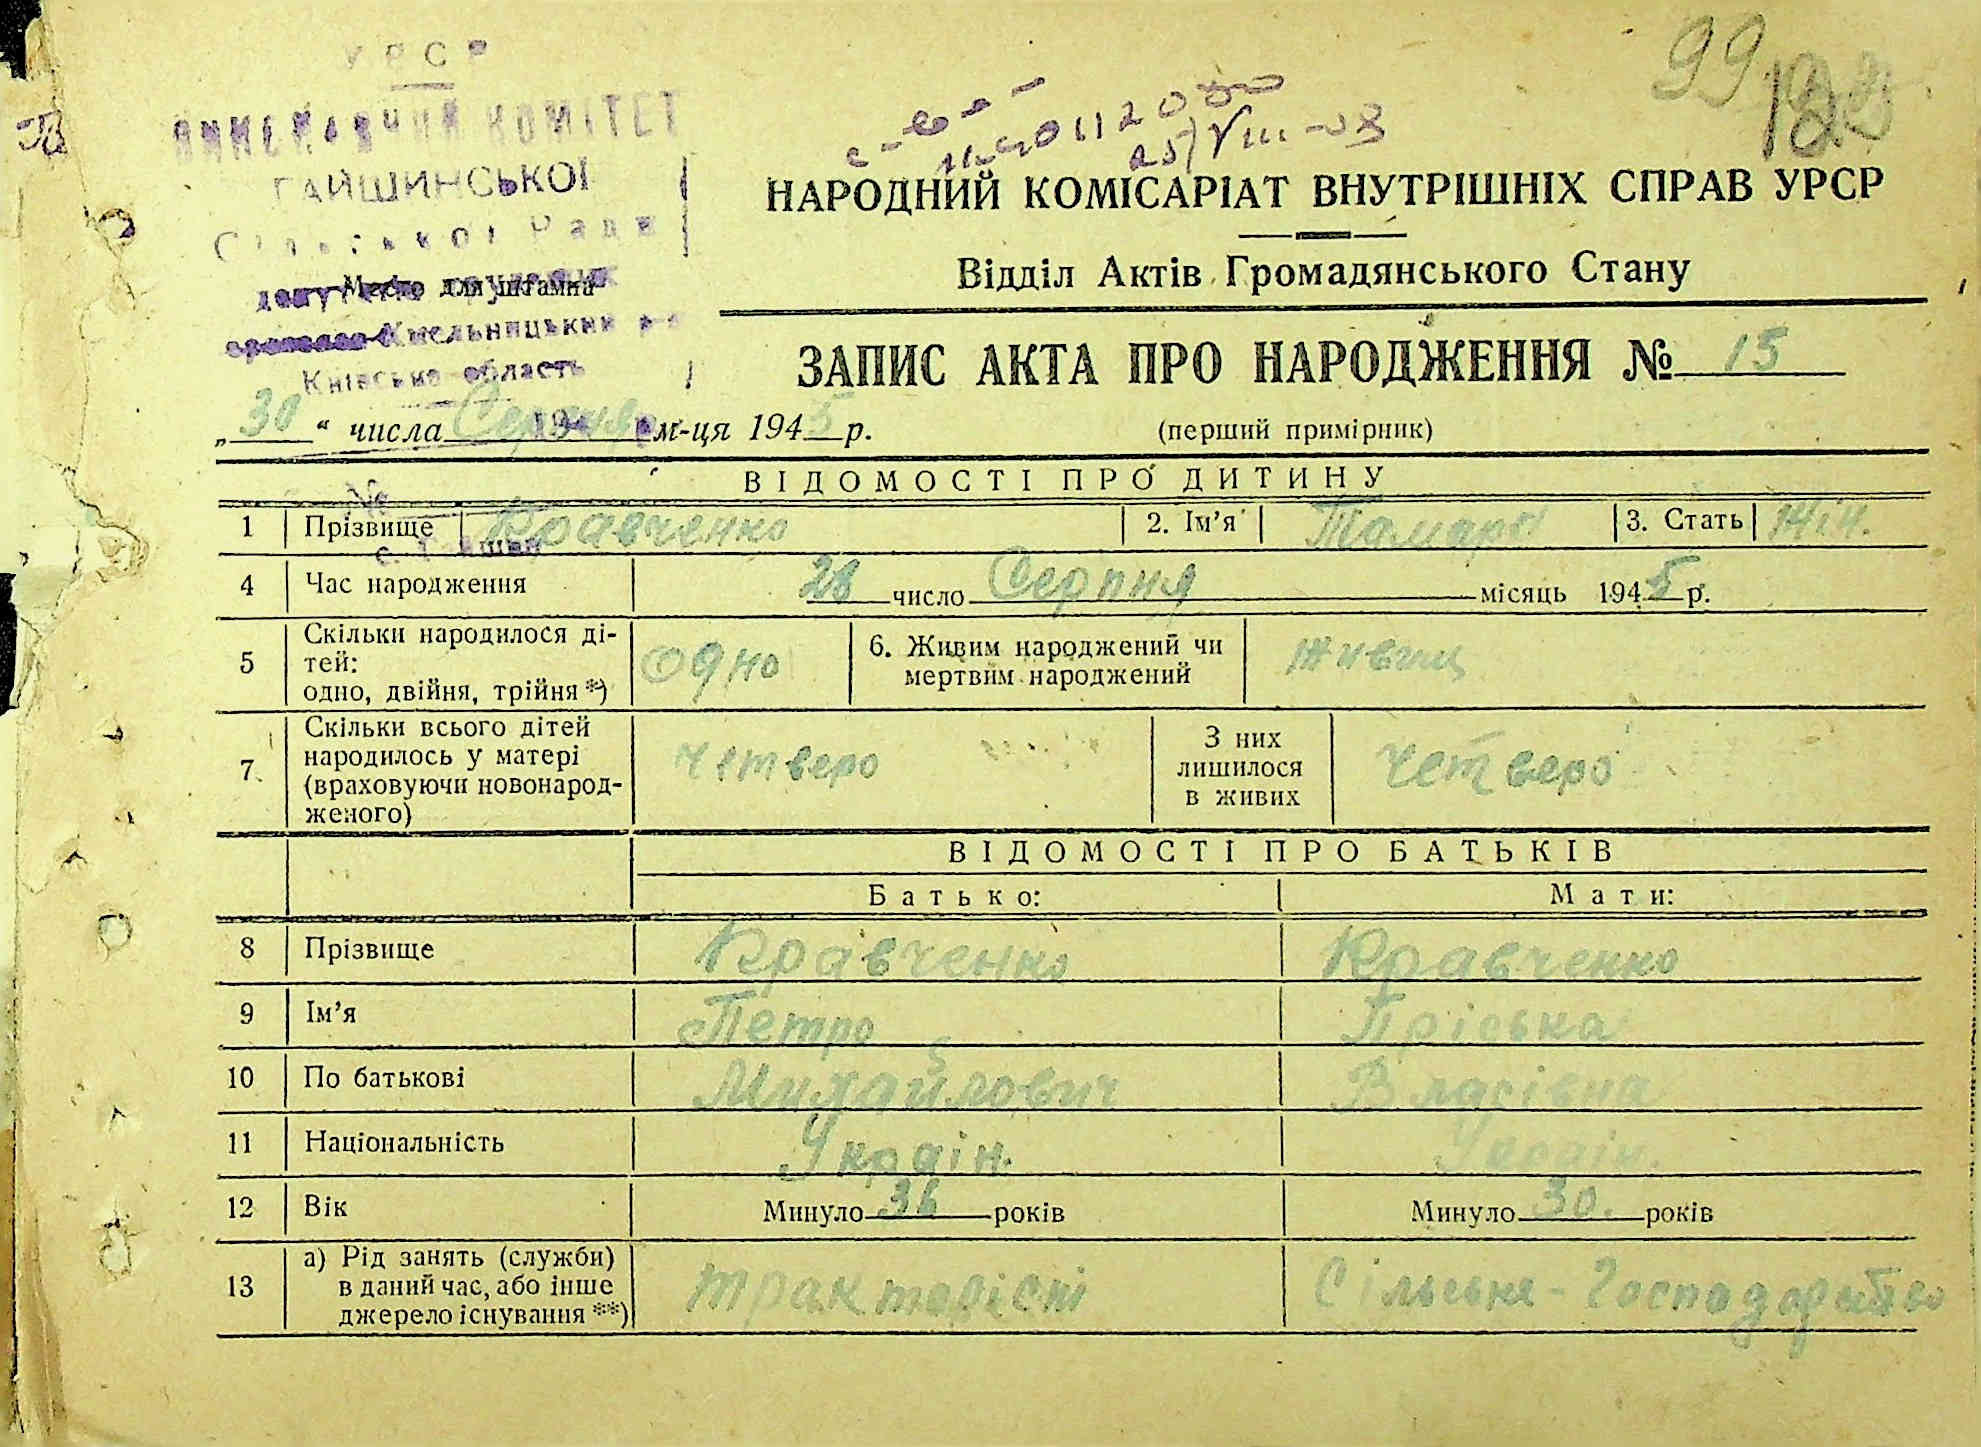 УРСР
ВИКОНАВЧИЙ КОМІТЕТ
ГАЙШИНСЬКОЇ
Сільської Ради
Место для штампа
Хмельницький р-н
Київська область
99
НАРОДНИЙ КОМІСАРІАТ ВНУТРІШНІХ СПРАВ УРСР
Відділ Актів Громадянського Стану
ЗАПИС АКТА ПРО НАРОДЖЕННЯ № 15
„30“ числа Серпня м-ця 1945 р.
(перший примірник)
ВІДОМОСТІ ПРО ДИТИНУ
№
1 Прізвище Кравченко 2. Ім’я Тамара 3. Стать Жін.
с. Гайшин
4 Час народження 28 число Серпня місяць 1945 р.
5 Скільки народилося дітей: одно, двійня, трійня *) Одно 6. Живим народжений чи мертвим народжений Живим
7. Скільки всього дітей народилось у матері (враховуючи новонародженого) Четверо З них лишилося в живих Четверо
ВІДОМОСТІ ПРО БАТЬКІВ
Батько: Мати:
8 Прізвище Кравченко Кравченко
9 Ім’я Петро Пріська
10 По батькові Михайлович Власівна
11 Національність Україн. Україн.
12 Вік Минуло 36 років Минуло 30. років
13 а) Рід занять (служби) в даний час, або інше джерело існування **) тракторіст Сільське-Господарство